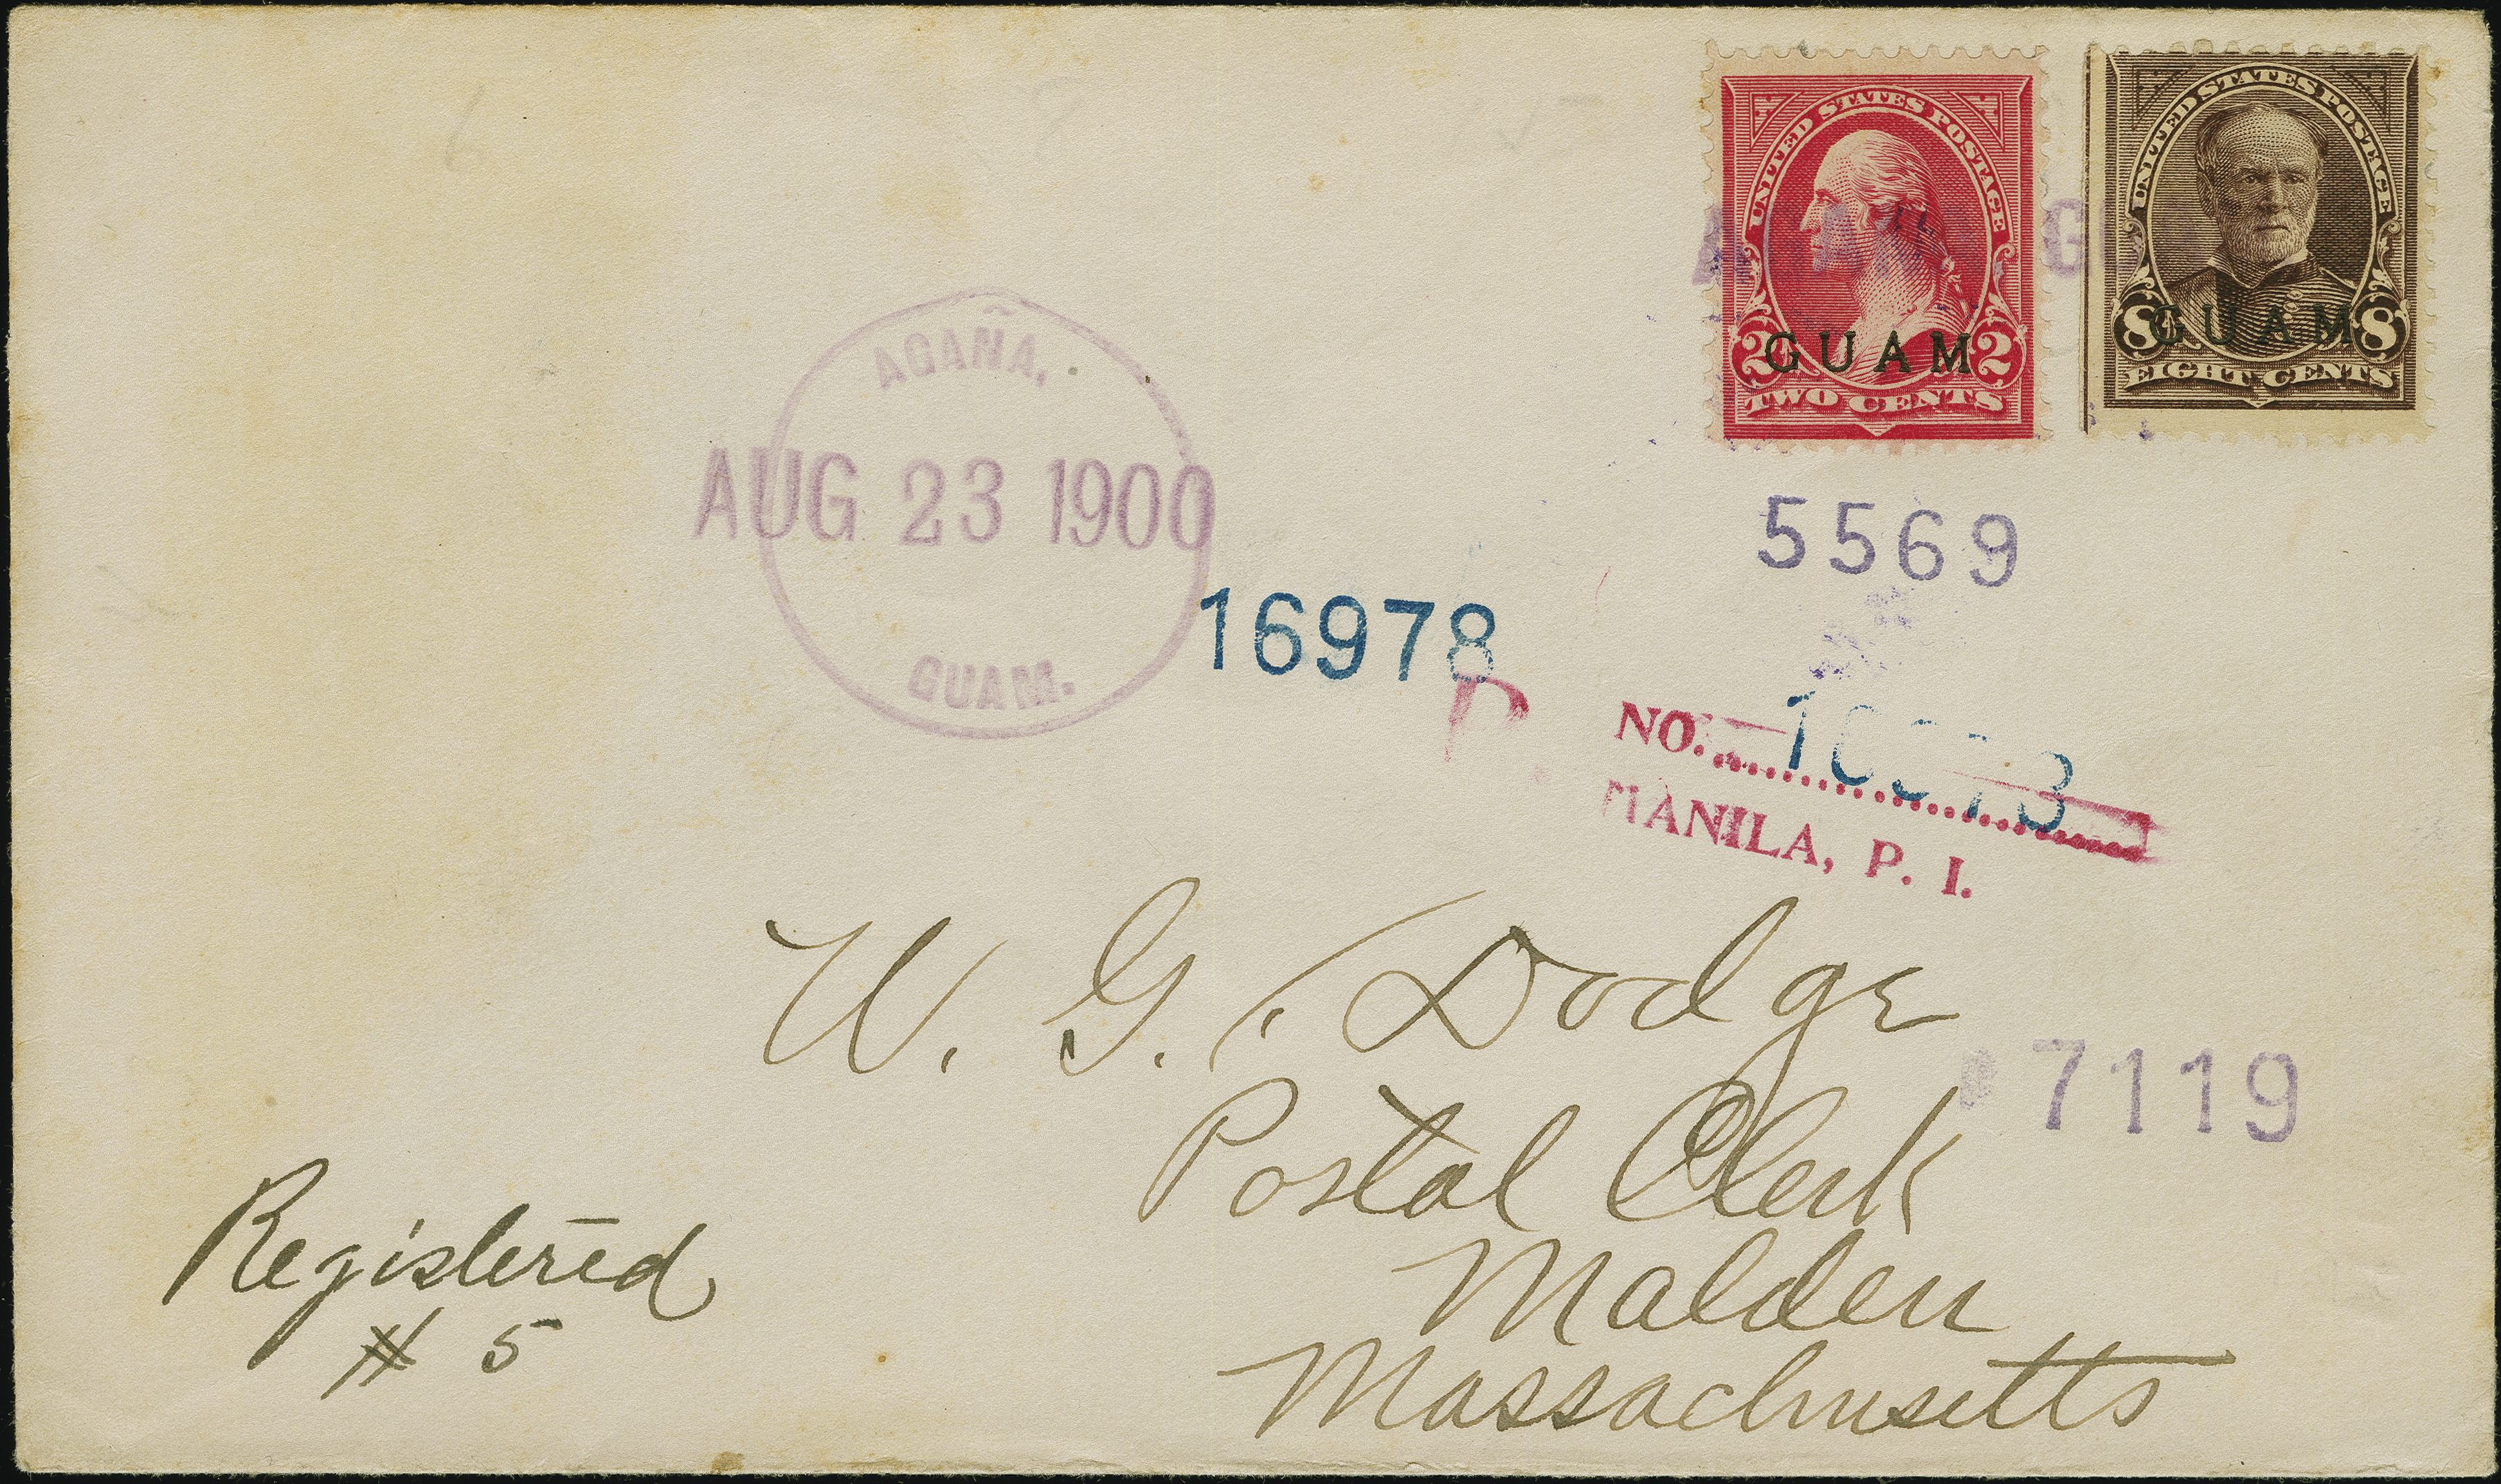 UNITED STATES POSTAGE
GUAM
2 2
TWO CENTS
UNITED STATES POSTAGE
GUAM
8 8
EIGHT CENTS
AGAÑA,
AUG 23 1900
GUAM.
5569
16978
R. NO.
MANILA, P. I.
W. G. Dodge
7119
Postal Clerk
Malden
Massachusetts
Registered
# 5